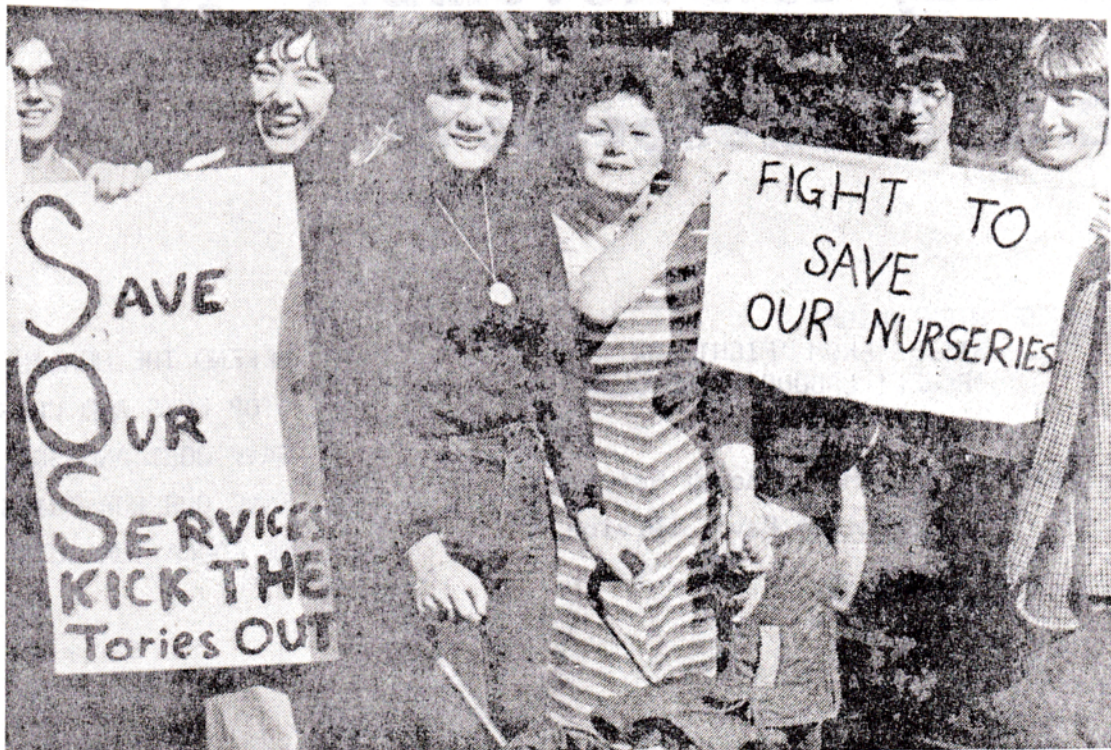 SAVE
OUR
SERVICES
KICK THE
Tories OUT
FIGHT TO
SAVE
OUR NURSERIES